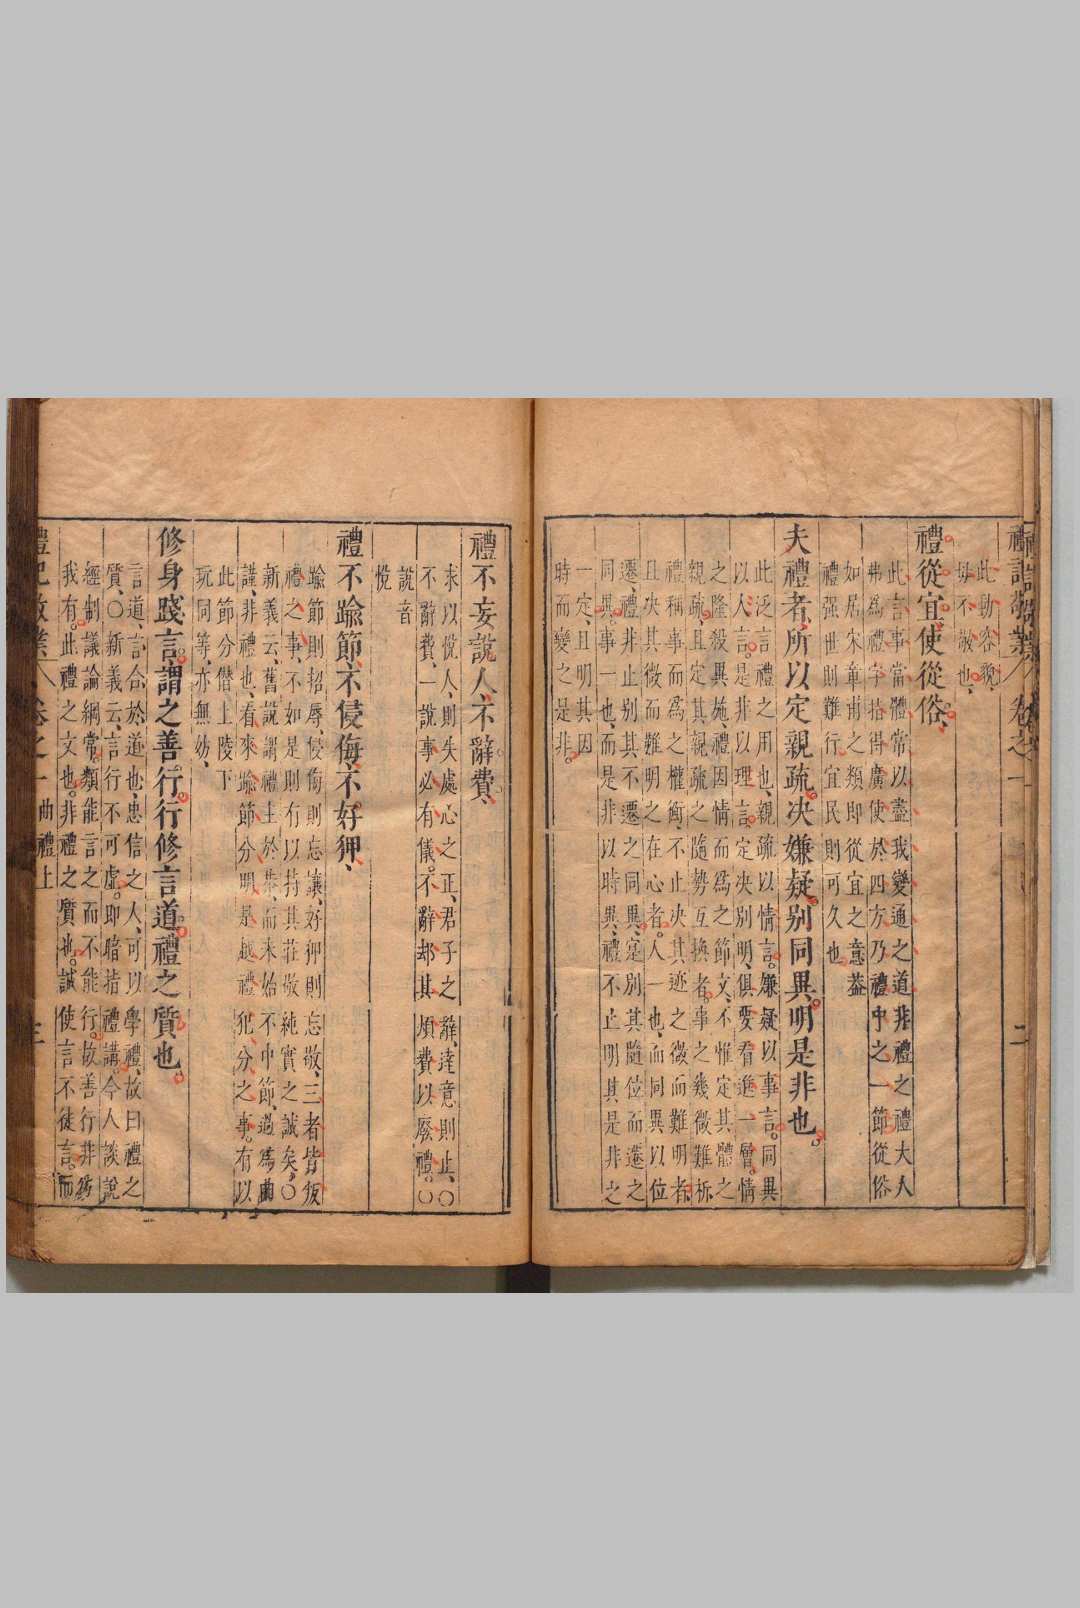 此動容貌、
毋不敬也、
禮從宜、使從俗、
此言事當體常以盡我變通之道、非禮之禮、大人
弗爲、禮字拈得廣、使於四方、乃禮中之一節、從俗
如居宋章甫之類、即從宜之意、葢
禮强世則難行、宜民則可久也、
夫禮者、所以定親疏、决嫌疑、别同異、明是非也。
此泛言禮之用也、親疏以情言。嫌疑以事言。同異
以人言。是非以理言。定决别明、俱要看進一層。情
之隆殺異施、禮因情而爲之節文、不惟定其體之
親疏。且定其親疏之隨勢互換者。事之幾微難析
禮稱事而爲之權衡、不止决其迹之微而難明者、
且决其微而難明之在心者。人一也、而同異以位
遷、禮非止别其不遷之同異、寔别其隨位而遷之
同異。事一也、而是非以時異、禮不止明其是非之
一定、且明其因
時而變之是非。
禮不妄說人、不辭費、
求以悅人、則失處心之正、君子之辭、達意則止、〇
不辭費、一說事必有儀。不辭却其煩費以廢禮。〇
說音
悅
禮不踰節、不侵侮、不好狎、
踰節則招辱、侵侮則忘讓、好狎則忘敬、三者皆叛
禮之事、不如是則有以持其莊敬純實之誠矣。〇
新義云、舊說謂禮主於恭、而未始不中節、過爲曲
謹、非禮也、看來踰節分明是越禮犯分之事。有以
此節分僭上陵下
玩同等、亦無妨、
修身踐言、謂之善行。行修言道、禮之質也。
言道、言合於道也、忠信之人、可以學禮、故曰禮之
質、〇新義云、言行不可虛。即暗指禮講。今人談說
經制、議論綱常。類能言之而不能行。故善行非務
我有。此禮之文也。非禮之質也。誠使言不徒言。而